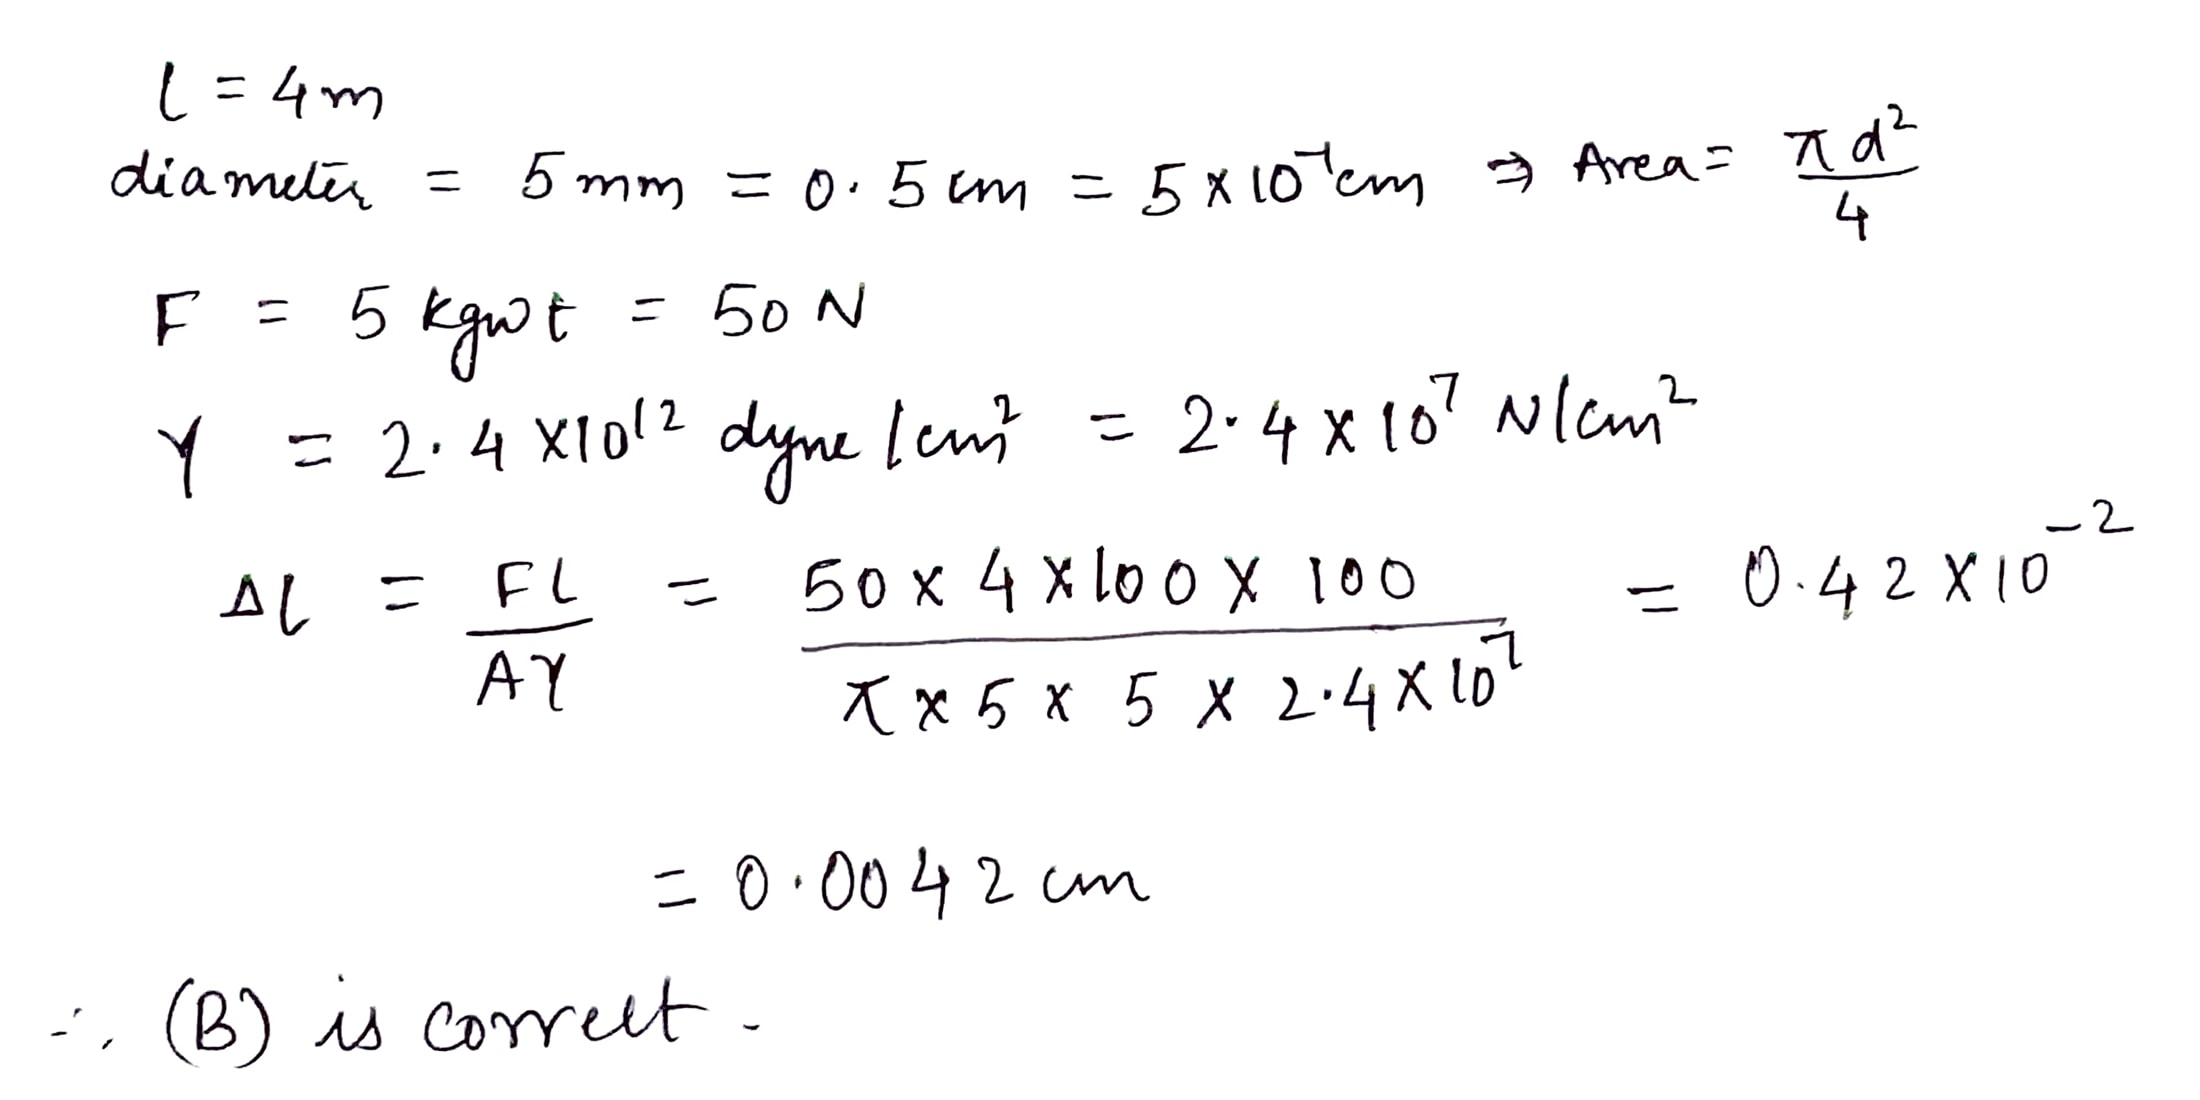 l = 4m
diameter = 5 mm = 0.5 cm = 5 × 10⁻¹cm ⇒ Area = πd²/4
F = 5 kgwt = 50 N
Y = 2.4 ×10¹² dyne/cm² = 2.4 × 10⁷ N/cm²
Δl = Fl/AY = 50 × 4 × 100 × 100 / π × 5 × 5 × 2.4 × 10⁷ = 0.42 × 10⁻²
= 0.0042 cm
∴ (B) is correct.